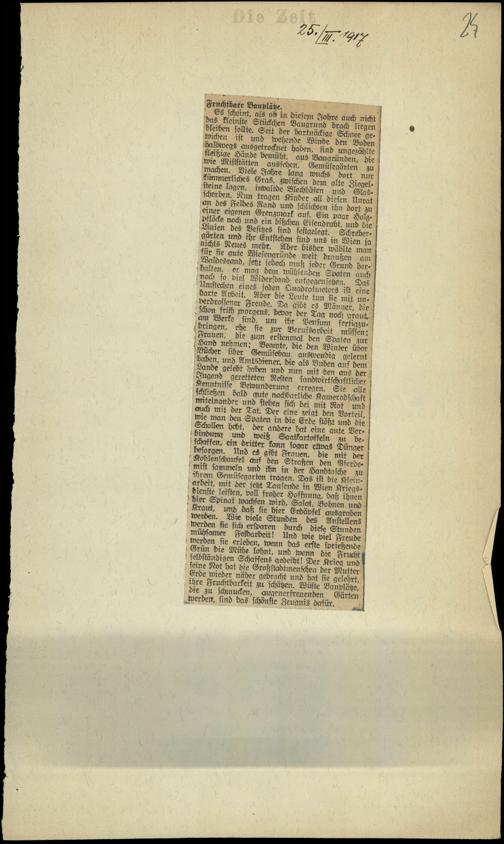 Die Zeit
25./III. 1917
24
Fruchtbare Bauplätze.
Es scheint, als ob in diesem Jahre auch nicht
das kleinste Stückchen Baugrund brach liegen
bleiben sollte. Seit der hartnäckige Schnee ge-
wichen ist und wehende Winde den Boden
halbwegs ausgetrocknet haben, sind ungezählte
fleißige Hände bemüht, aus Baugründen, die
wie Miststätten aussehen, Gemüsegärten zu
machen. Viele Jahre lang wuchs dort nur
kümmerliches Gras, zwischen dem alte Ziegel-
steine lagen, invalide Blechhäfen und Glas-
scherben. Nun tragen Kinder all diesen Unrat
an des Feldes Rand und schlichten ihn dort zu
einer eigenen Grenzmark auf. Ein paar Holz-
pflöcke noch und ein bißchen Eisendraht, und die
Linien des Besitzes sind festgelegt. Schreber-
gärten und ihr Entstehen sind uns in Wien ja
nichts Neues mehr. Aber bisher wählte man
für sie gute Wiesengründe weit draußen am
Waldesrand, jetzt jedoch muß jeder Grund her-
halten, er mag dem wühlenden Spaten auch
noch so viel Widerstand entgegensetzen. Das
Umstechen eines jeden Quadratmeters ist eine
harte Arbeit. Aber die Leute tun sie mit un-
verdrossener Freude. Da gibt es Männer, die
schon früh morgens, bevor der Tag noch graut,
am Werke sind, um ihr Pensum fertigzu-
bringen, ehe sie zur Berufsarbeit müssen;
Frauen, die zum erstenmal den Spaten zur
Hand nehmen; Beamte, die den Winter über
Bücher über Gemüsebau auswendig gelernt
haben, und Amtsdiener, die als Buben auf dem
Lande gelebt haben und nun mit den aus der
Jugend geretteten Resten landwirtschaftlicher
Kenntnisse Bewunderung erregen. Sie alle
schließen bald gute nachbarliche Kameradschaft
miteinander und stehen sich bei mit Rat und
auch mit der Tat. Der eine zeigt den Vorteil,
wie man den Spaten in die Erde stößt und die
Schollen hebt, der andere hat eine gute Ver-
bindung und weiß Saatkartoffeln zu be-
schaffen, ein dritter kann sogar etwas Dünger
besorgen. Und es gibt Frauen, die mit der
Kohlenschaufel auf den Straßen den Pferde-
mist sammeln und ihn in der Handtasche zu
ihrem Gemüsegarten tragen. Das ist die Klein-
arbeit, mit der jetzt Tausende in Wien Kriegs-
dienste leisten, voll froher Hoffnung, daß ihnen
hier Spinat wachsen wird, Salat, Bohnen und
Kraut, und daß sie hier Erdäpfel ausgraben
werden. Wie viele Stunden des Anstellens
werden sie sich ersparen durch diese Stunden
mühsamer Feldarbeit! Und wie viel Freude
werden sie erleben, wenn das erste sprießende
Grün die Mühe lohnt, und wenn die Frucht
selbständigen Schaffens gedeiht! Der Krieg und
seine Not hat die Großstadtmenschen der Mutter
Erde wieder näher gebracht und hat sie gelehrt,
ihre Fruchtbarkeit zu schätzen. Wüste Bauplätze,
die zu schmucken, augenerfreuenden Gärten
werden, sind das schönste Zeugnis dafür.